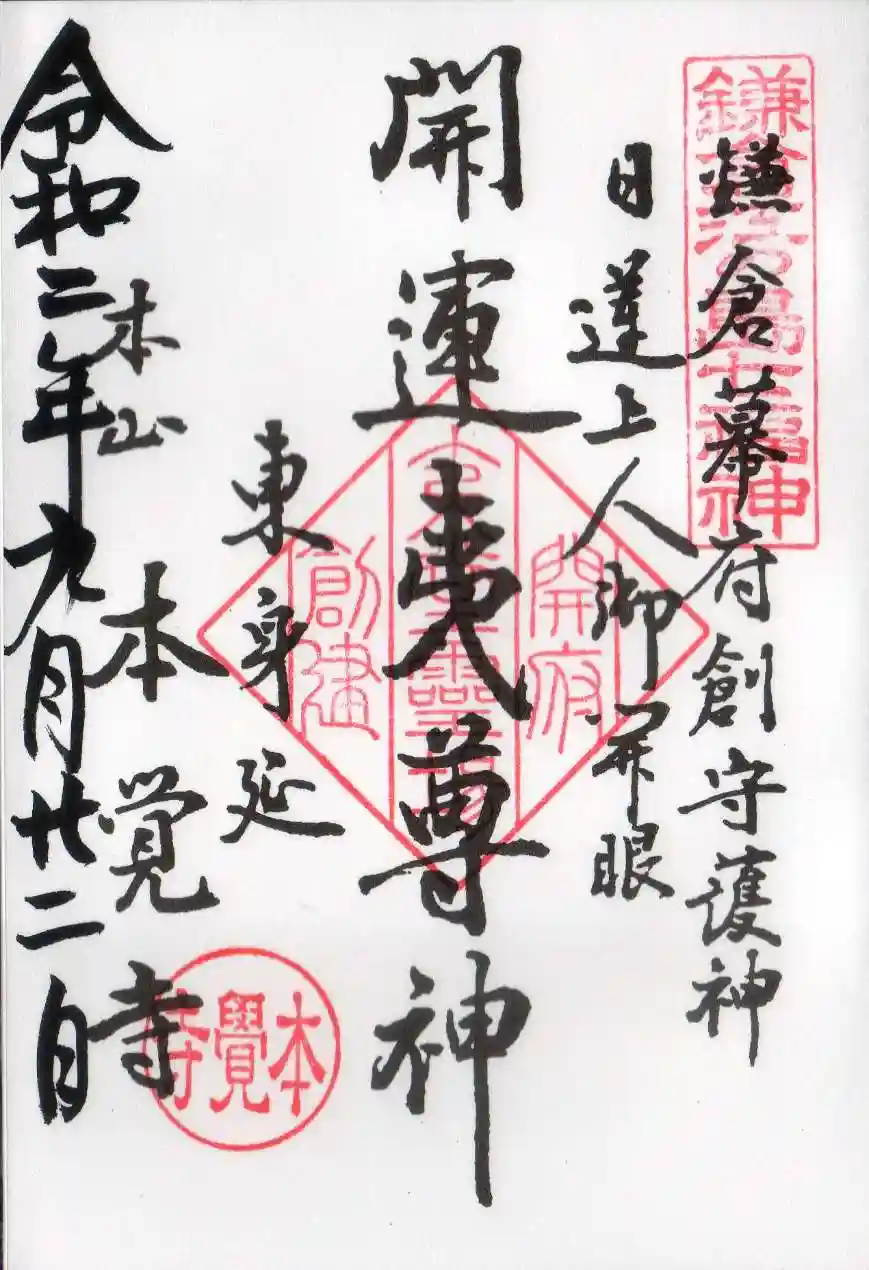 鎌倉江の島七福神
鎌倉幕府創守護神
日蓮上人御開眼
開運夷尊神
開府
創建
東身延
本山
本覚寺
本覺寺
令和二年九月廿二日